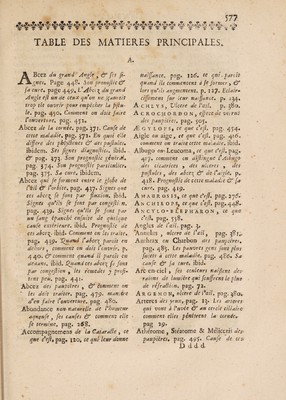 577
TABLE DES MATIERES PRINCIPALES.
A.
Abcez du grand Angle, & ses signes. Page 448. Son prognostic &
sa cure, page 449. L'Abcez du grand
Angle est un de ceux qu'on ne sçauroit
trop tôt ouvrir pour empêcher la fistule,
pag. 450. Comment on doit faire
l'ouverture, pag. 452.
Abcez de la cornée, pag. 371. Cause de
cette maladie, pag. 372. En quoi elle
differe des phlyctenes & des pustules,
ibidem. Ses signes diagnostics, ibid.
& pag. 373. Son prognostic général,
pag. 374. Son prognostic particulier,
pag. 375. Sa cure, ibidem.
Abcez qui se forment entre le globe de
l'œil & l'orbite, pag. 437. Signes que
ces abcez se font par fluxion, ibid.
Signes qu'ils se font par congestion,
pag. 439. Signes qu'ils se font par
un sang épanché ensuite de quelque
cause extérieure, ibid. Prognostic de
ces abcez, ibid. Comment on les traite,
pag. 439. Quand l'abcez paroît en
dehors, comment on doit l'ouvrir, p.
440. & comment quand il paroît en
dedans, ibid. Quand ces abcez se sont
par congestion, les remedes y presserent peu, pag. 441.
Abcez des paupieres, & comment on
les doit traiter, pag. 479. maniere
d'en faire l'ouverture, pag. 480.
Abondance non naturelle de l'humeur
aqueuse, ses causes & comment elle
se termine, pag. 268.
Accompagnemens de la Cataracte, ce
que c'est, pag. 120, ce qui leur donne
naissance, pag. 126, et qui parole
quand ils commencent à se former, &
lors qu'ils augmentent, p. 127. Eclaircissement sur leur naissance, p. 134.
ACHLYS, Ulcere de l'œil, p. 380.
ACROCHORDON, espece de verrue
des paupieres, pag. 505.
ÆGYLOPS, ce que c'est, pag. 454.
Aigle ou aige, ce que c'est, pag. 416.
comment on traite cette maladie, ibid.
Albugo ou Leucoma, ce que c'est, pag.
407. comment on distingue l'albugo
des cicatrices, des ulceres, des
pustules, des abcez & de l'aigle. p.
408. Prognostic de cette maladie & sa
cure, pag. 419.
AMAUROSIS, ce que c'est, pag. 276.
ANCHYLOPS, ce que c'est, pag. 448.
ANCYLO-BLEPHARON, ce que
c'est, pag. 558.
Angles de l'œil, pag. 3.
Annulus, ulcere de l'œil, pag. 381.
Anthrax ou Charbon des paupieres,
pag. 485. Les pauvres gens sont plus
sujets à cette maladie, pag. 486. Sa
cause & sa cure, ibid.
Arc-en-ciel, ses couleurs naissent des
raïons de lumiere qui souffrent le plus
de réfraction, pag. 72.
ARGEMON, ulcere de l'œil, pag. 380.
Arteres des yeux, pag. 13. Les arteres
qui vont à l'uvée & au cercle ciliaire
comment elles pénétrent la cornée.
pag. 29.
Athérome, Stéatome & Mélicéris des
paupieres, pag. 495. Cause de ces
Dddd